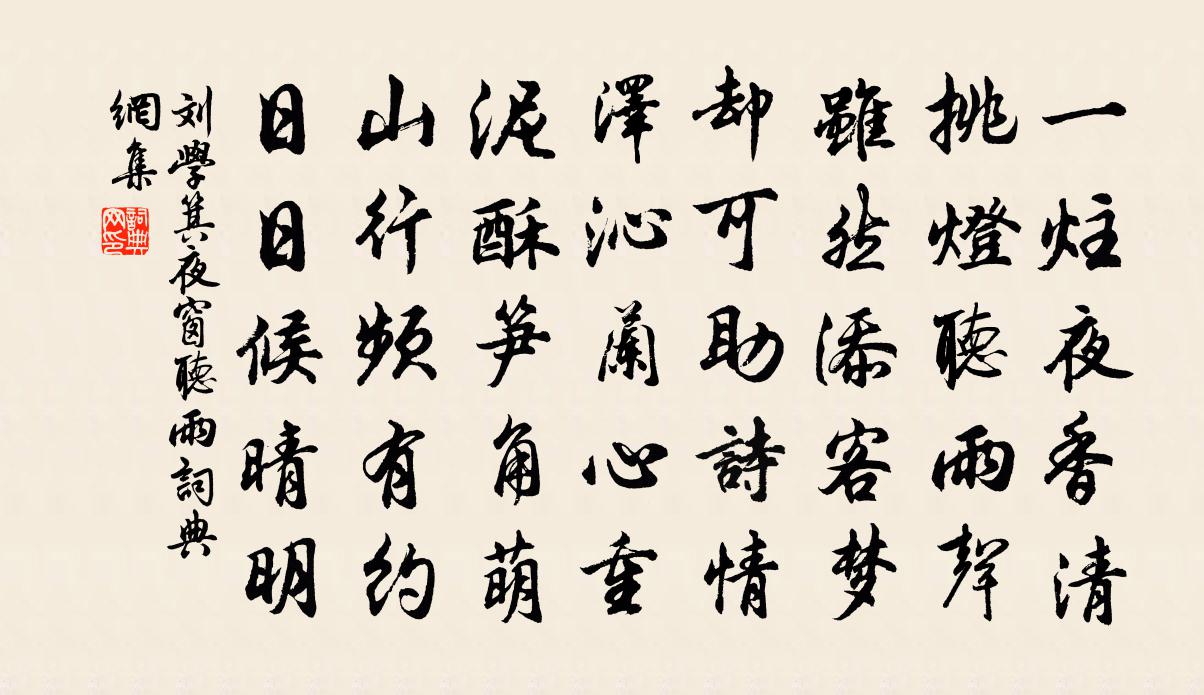 一炷夜香清
挑燈聽雨聲
雖然添客梦
却可助詩情
澤沁蘭心重
泥酥笋角萌
山行頻有約
日日候晴明
刘學箕夜窗聽雨詞典
網集
詞典
网印